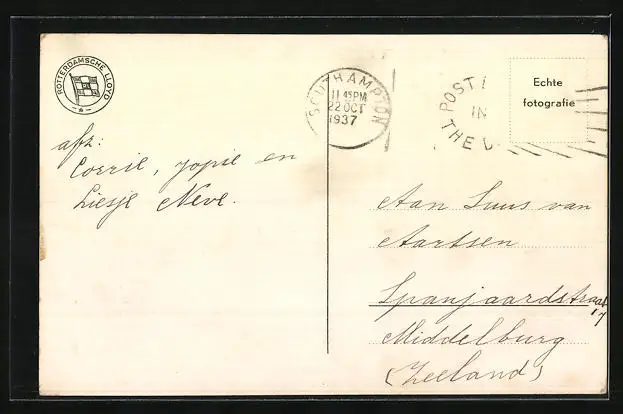 ROTTERDAMSCHE LLOYD
SOUTHAMPTON
11 45 PM
22 OCT
1937
POST
IN
THE
Echte
fotografie
afz:
Corrie, Jopie en
Liesje Neve.
Aan Suus van
Aartsen
Spanjaardstraat
17
Middelburg
(Zeeland)